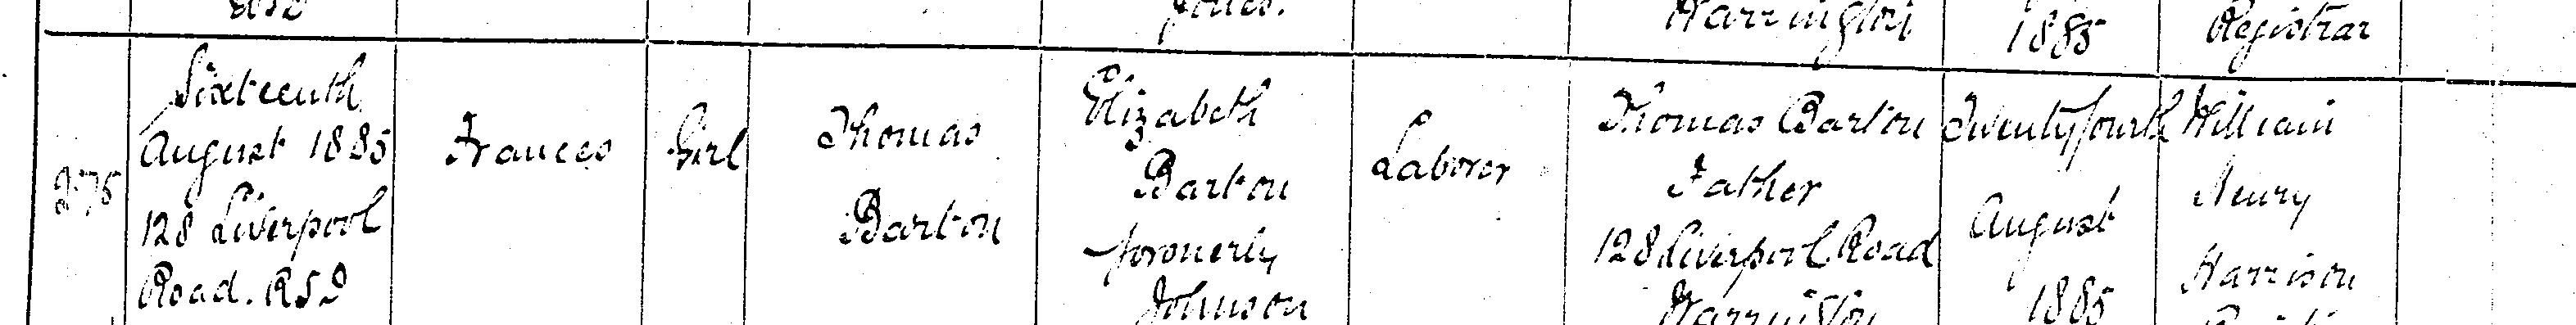 Jones.
Warrington
1885
Registrar
275
Sixteenth
August 1885
128 Liverpool
Road. RSD
Frances
Girl
Thomas
Barton
Elizabeth
Barton
formerly
Johnson
Laborer
Thomas Barton
Father
128 Liverpool Road
Warrington
Twentyfourth
August
1885
William
Henry
Harrison